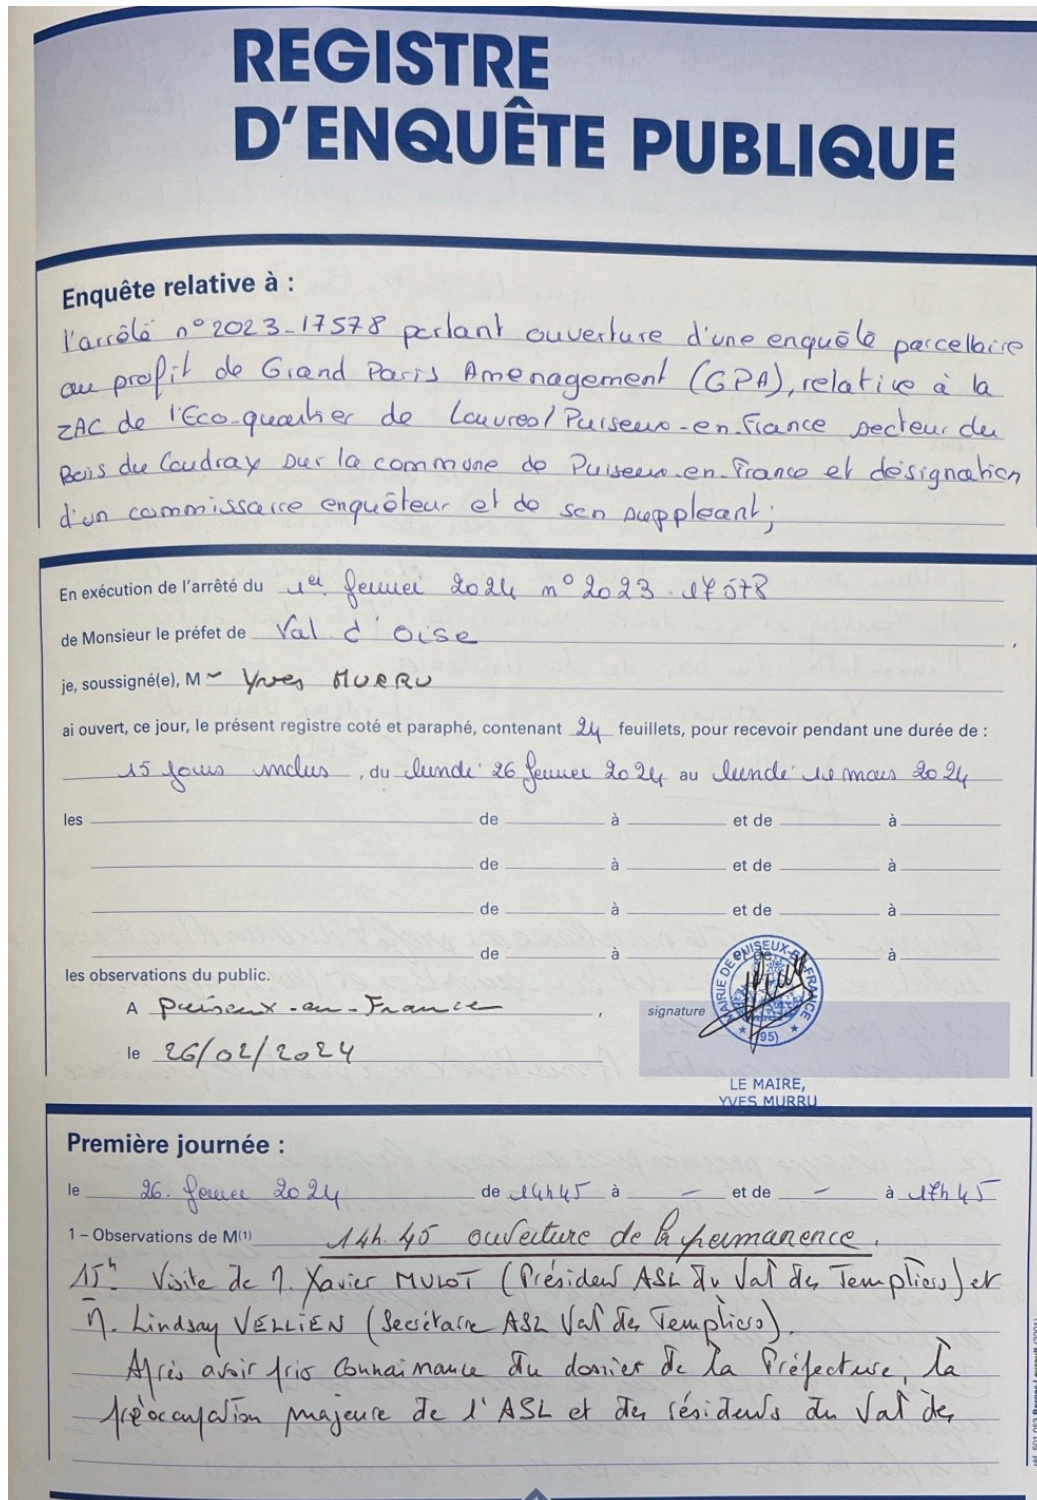 REGISTRE
D'ENQUÊTE PUBLIQUE
Enquête relative à :
l'arrêté n° 2023-17578 portant ouverture d'une enquête parcellaire
au profit de Grand Paris Amenagement (GPA), relative à la
ZAC de l'Eco-quartier de Louvres/Puiseux-en-France secteur du
Bois du Coudray sur la commune de Puiseux-en-France et désignation
d'un commissaire enquêteur et de son suppleant;
En exécution de l'arrêté du 1er fevrier 2024 n° 2023-17578
de Monsieur le préfet de Val d'Oise ,
je, soussigné(e), M Yves MURRU
ai ouvert, ce jour, le présent registre coté et paraphé, contenant 24 feuillets, pour recevoir pendant une durée de :
15 jours inclus , du lundi 26 fevrier 2024 au lundi 11 mars 2024
les de à et de à
de à et de à
de à et de à
de à et de à
les observations du public.
MAIRIE DE PUISEUX-EN-FRANCE
(95)
A Puiseux-en-France ,
signature
le 26/02/2024
LE MAIRE,
YVES MURRU
Première journée :
le 26 fevrier 2024 de 14h45 à – et de – à 17h45
1 – Observations de M(1) 14h.45 ouverture de la permanence.
15h Visite de M. Xavier MULOT (Président ASL du Val des Templiers) et
M. Lindsay VELLIEN (Secrétaire ASL Val des Templiers).
Après avoir pris connaissance du dossier de la Préfecture, la
préoccupation majeure de l'ASL et des résidents du Val des